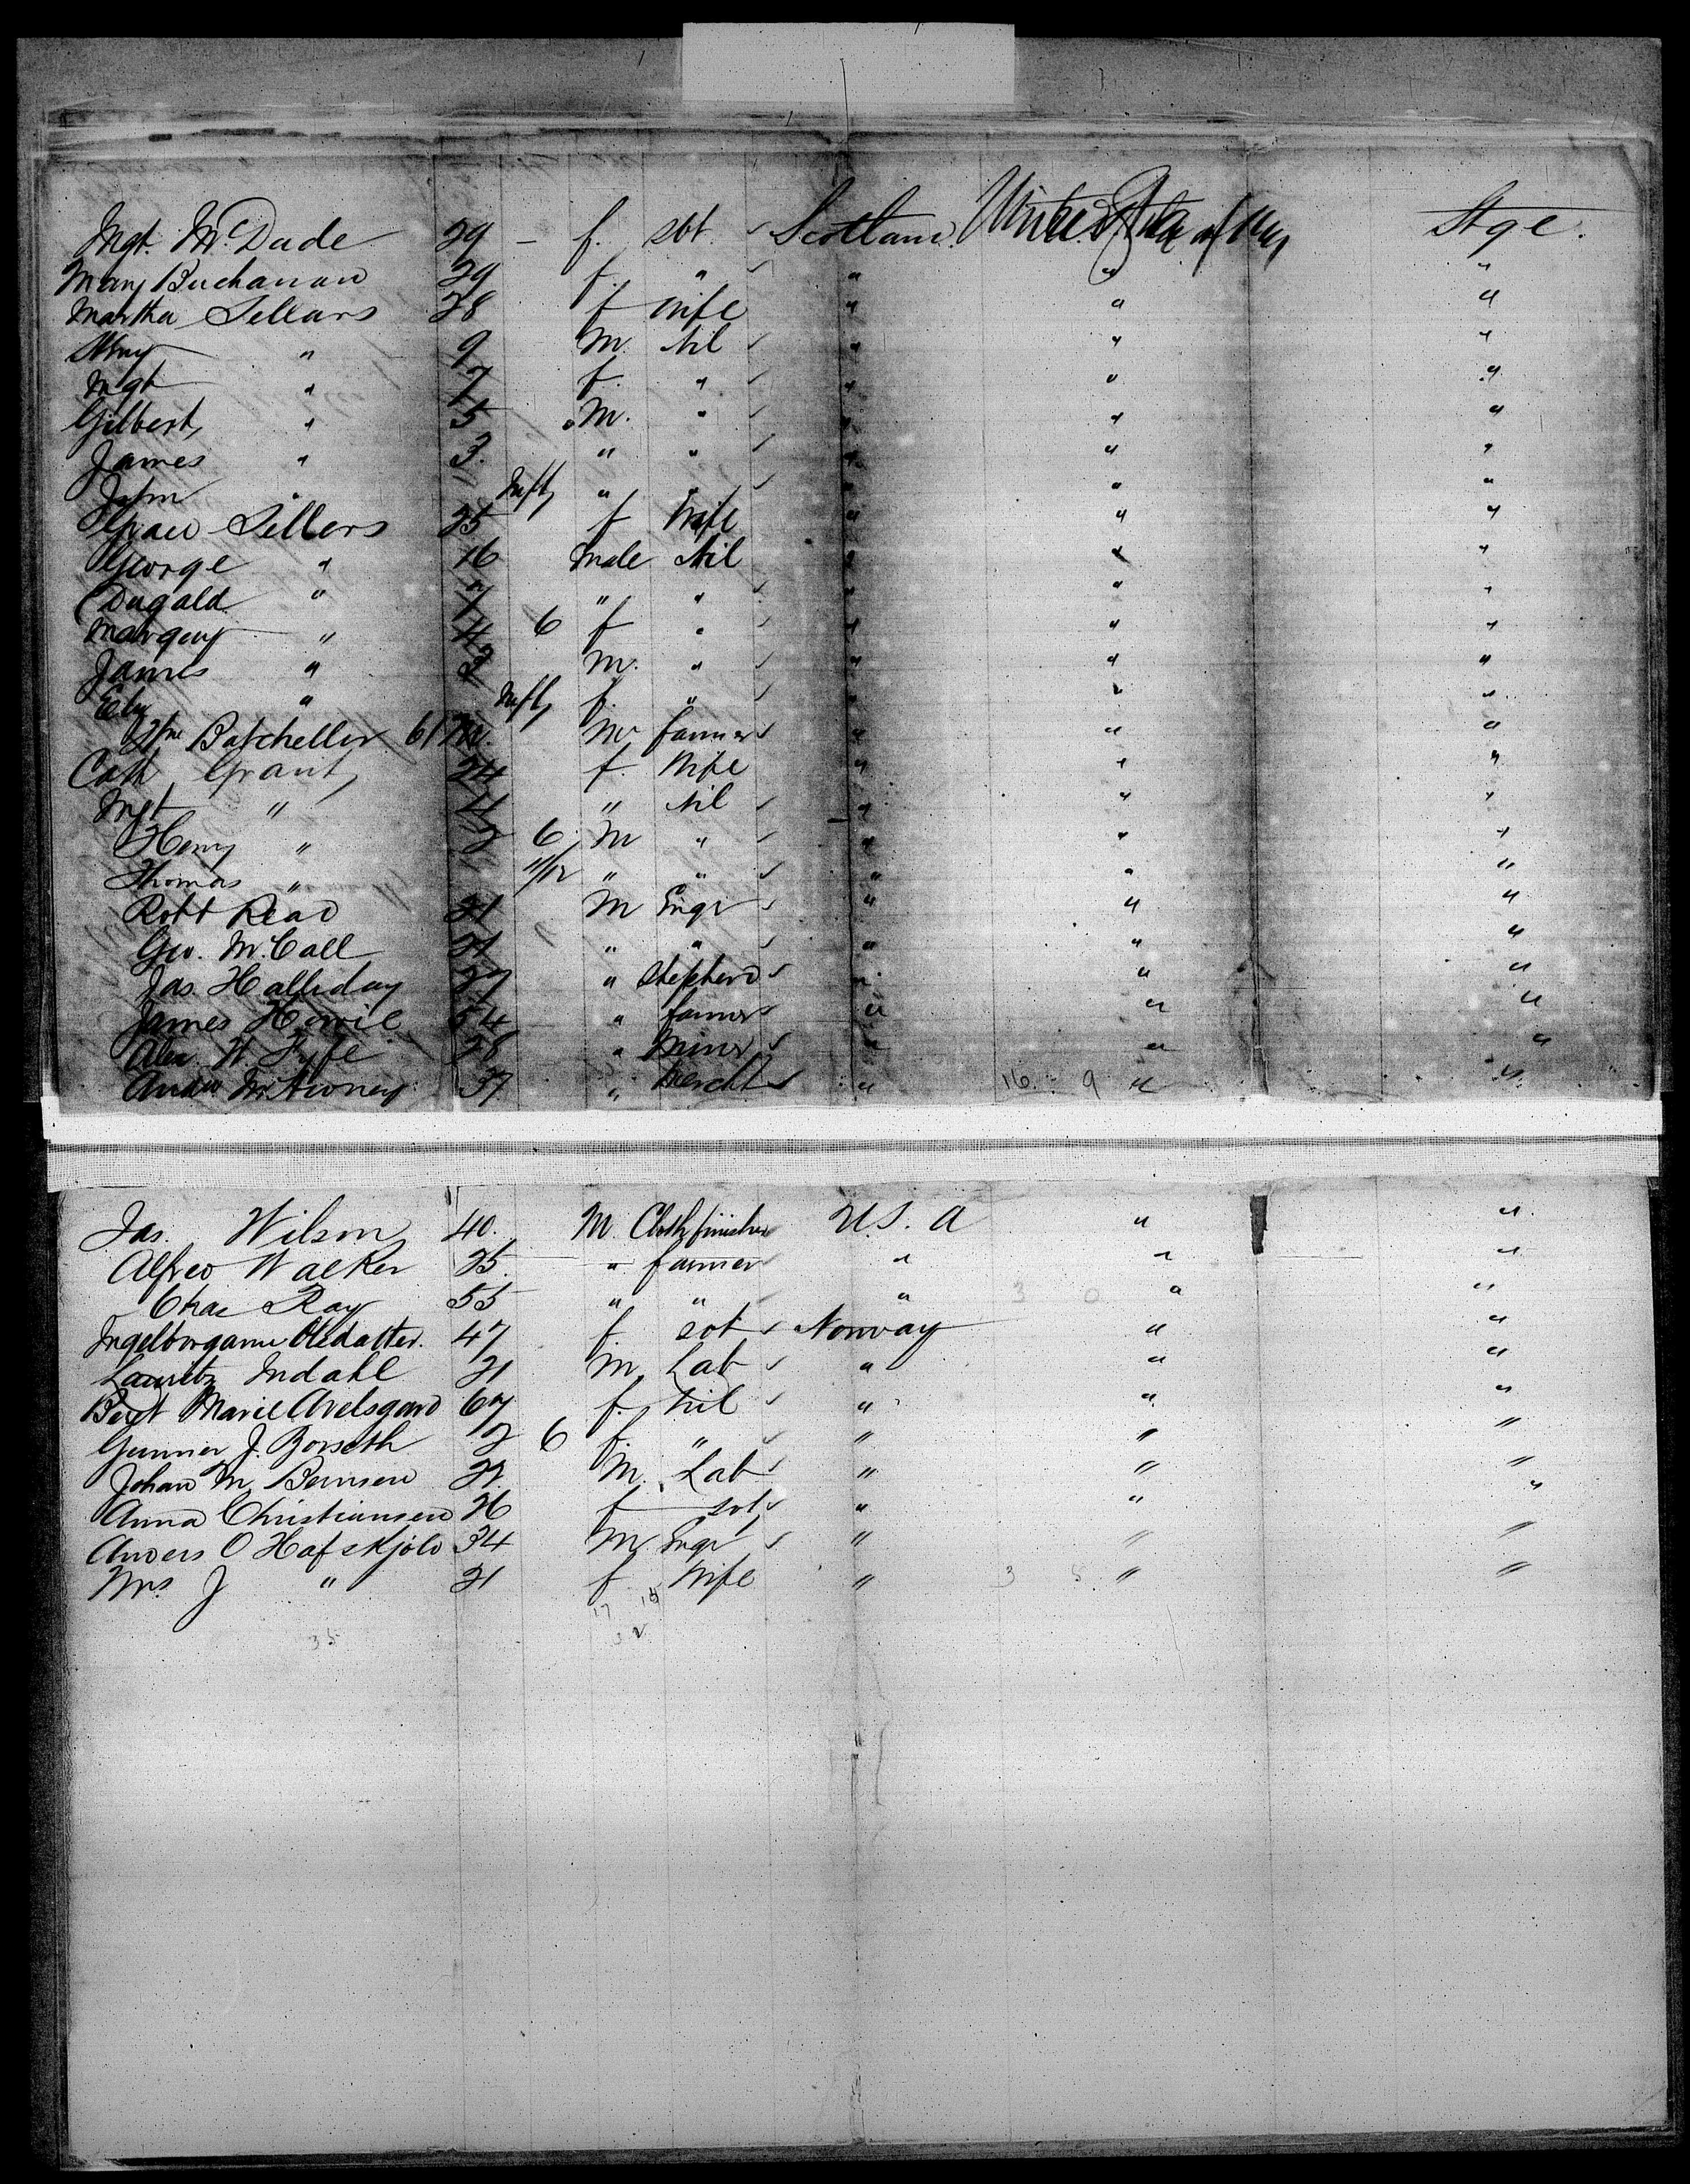 Mgt. McDade 29 – f. sbt. ✓ Scotland. United States of Stge.
Mary Buchanan 29 f. " ✓ " " "
Martha Sellars 28 f wife " " "
" 9 M. Nil ✓ " " "
Mgt " 7 f. " ✓ " " "
Gilbert, " 5 M. " ✓ " " "
James " 3. " " ✓ " " "
John " Inft " " ✓ " " "
Grace Sellers 25 f Wife " " "
George " 16 Male Nil " " "
Dugald " 7 " " ✓ " " "
Margery " 4 6 f " ✓ " " "
James " 2 M. " ✓ " " "
" Inft f. " ✓ " " "
Batcheller 61 M. farmer ✓ " " "
Cath Grant, 24 f. Wife " " "
Mgt " 4 " Nil ✓ " " "
Henry " 2 6 M " ✓ " " "
Thomas " 11/12 " " ✓ " " "
Robt Read 21 M Engr ✓ " " "
Geo. McCall 21 " " ✓ " " "
Jas. Halliday 27 " Shepherd ✓ " " "
James Howie 54 " farmer " " "
Alex. W Fyfe 28 " Miner ✓ " " "
Andw 37 " Mercht ✓ " 16. 9 " "
Jas. Wilson 40. M Cloth finisher U.S. A " "
Alfred Walker 25. " farmer " " "
Chas Ray 55 " " ✓ " 3 0 " "
Ingelborganne Oledatter. 47 f. sbt ✓ Norway " "
Lauritz Indahl 21 M, Lab ✓ " " "
Beret Marie 67 f. Nil ✓ " " "
Gunner J. Borseth 2 6 f. " ✓ " " "
Johan M. 21. M. Lab ✓ " " "
Anna Christiansen 26 f sbt ✓ " " "
Anders O Hafskjold 34 M Engr ✓ " " "
Mrs. J " 21 f Wife " 3 5 " "
17 15
35 32